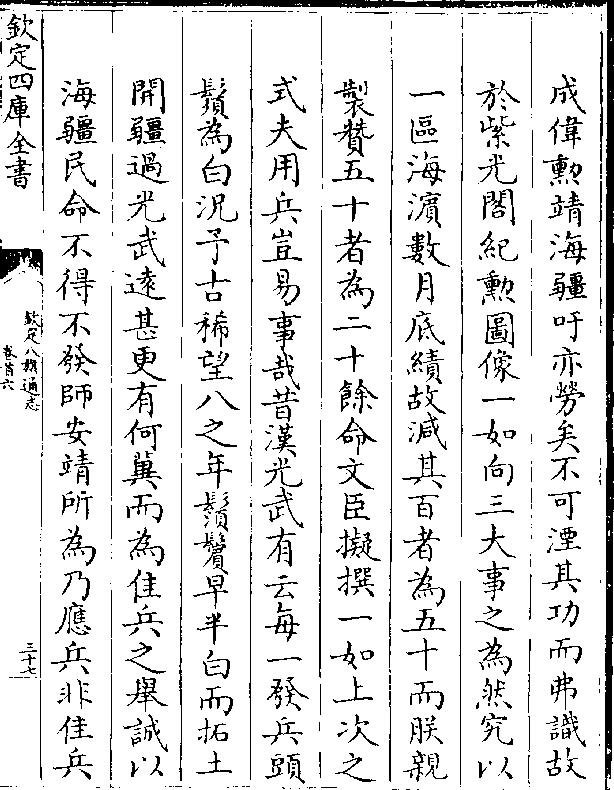 成偉勲靖海疆吁亦勞矣不可湮其功而弗識故
於紫光閣紀勲圖像一如向三大事之為然究以
一區海濵數月底績故減其百者為五十而朕親
製賛五十者為二十餘命文臣擬撰一如上次之
式夫用兵豈易事哉昔漢光武有云每一發兵頭
鬚為白況予古稀望八之年鬚鬢早半白而拓土
開疆過光武逺甚更有何冀而為佳兵之舉誠以
海疆民命不得不發師安靖所為乃應兵非佳兵
欽定四庫全書
欽定八旗通志
卷首六
三十七